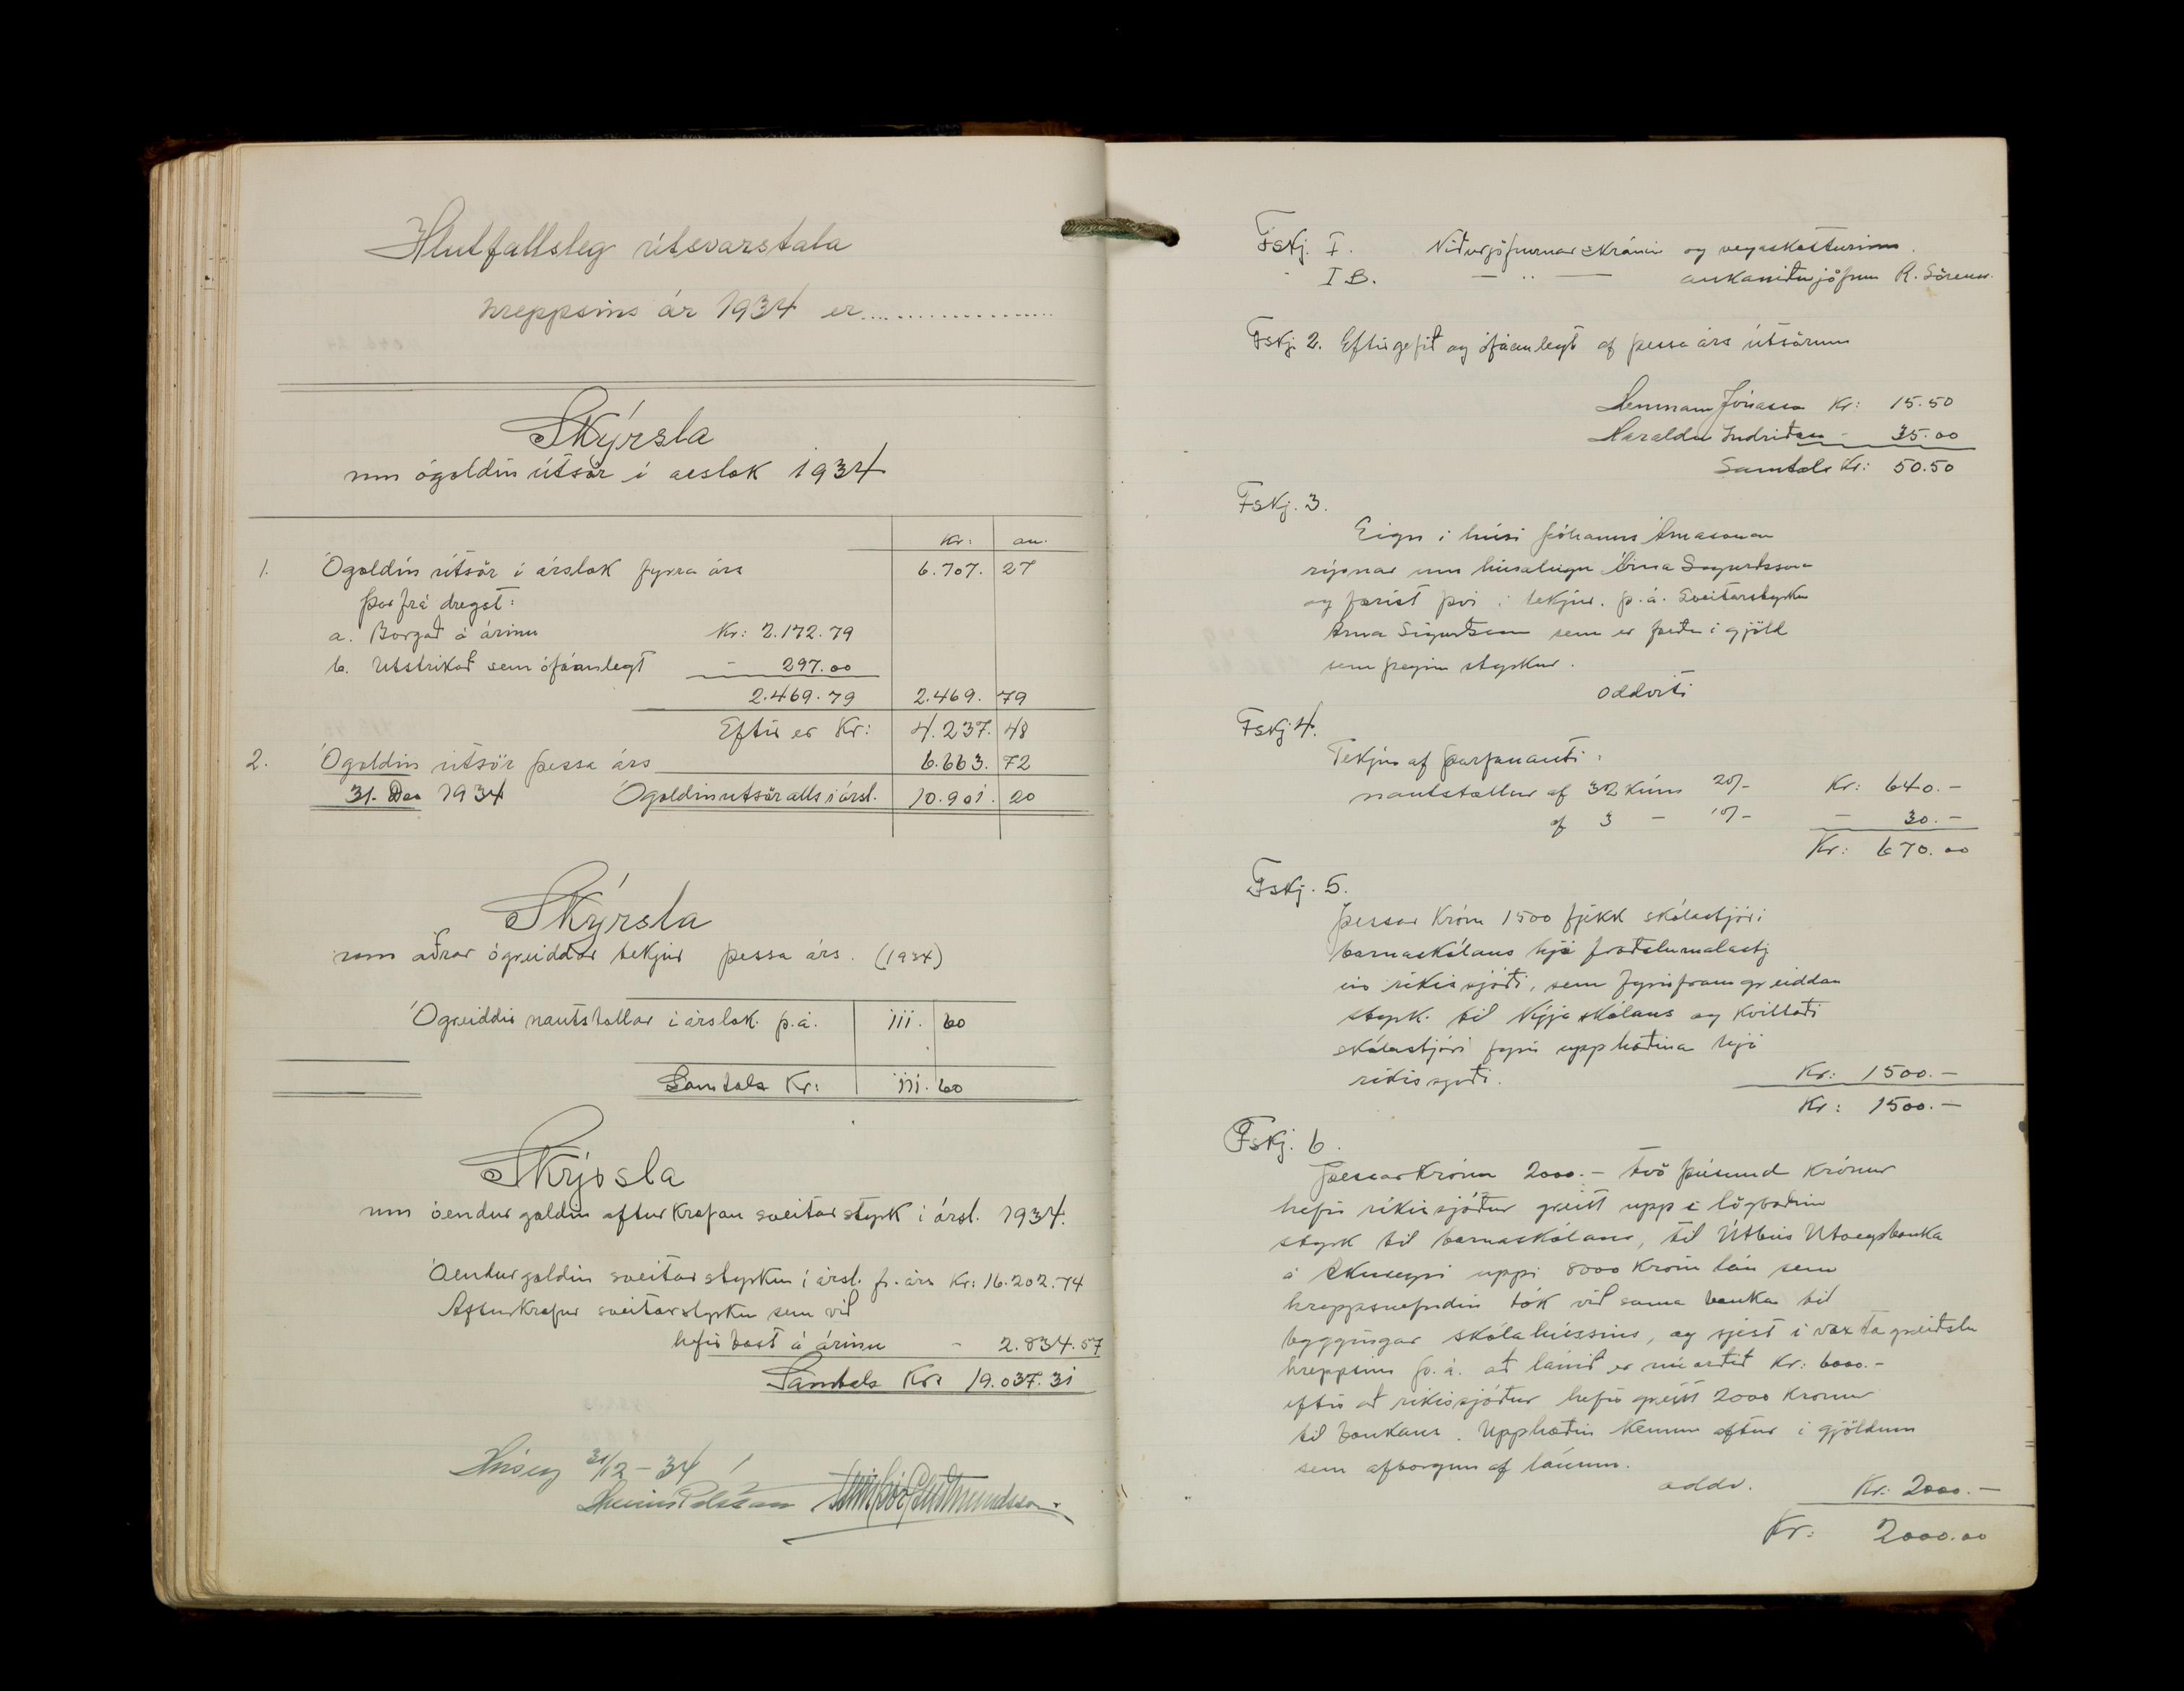 Hlutfallsleg útsvarstala
hreppsins ár 1934 er..................
Skýrsla
um ógoldin útsör í árslok 1934
Kr: au.
1. Ógoldin útsör í árslok fyrra árs 6.707. 27
Þar frá dregst:
a. Borgað á árinu Kr: 2.172.79
b. Utstrikað sem ófáanlegt - 297.00
2.469.79 2.469. 79
Eftir er Kr: 4.237. 48
2. Ógoldin útsör þessa árs 6.663. 72
31. Des 1934 Ógoldin utsör alls í ársl. 10.901. 20
Skýrsla
um aðrar ógreiddar tekjur þessa árs. (1934)
Ógreiddir nautstollar í árslok þ.á. 111. 60
Samtals Kr: 111. 60
Skýrsla
um óendurgoldin afturkræfan sveitarstyrk í ársl. 1934.
Óendurgoldin sveitarstyrkur í ársl. f. árs Kr: 16.202.74
Afturkræfur sveitarstyrkur sem við
hefir bæst á árinu - 2.834.57
Samtals Kr: 19.037.31
Hrísey 31/12-34
Guðmundsson.
Fskj. I. Niðurjöfnunarskráin og vegaskatturinn.
I B. — " — aukaniðurjöfnun R. Sörens.
Fskj. 2. Eftirgefið og ófáanlegt af þessa árs útsörum
Hermann Jónasson Kr: 15.50
Haraldur Indriðason - 35.00
Samtals Kr: 50.50
Fskj. 3.
Eign í húsi Jóhanns Árnasonar
rýrnar um húsaleigu Árna Sigurðssonar
og færist því í tekjur. þ.á. Sveitarstyrkur
Árna Sigurðssonar sem er færður í gjöld
sem þeginn styrkur.
Oddviti
Fskj 4.
Tekjur af þarfanauti:
nautstollur af 32 kúm 20/- Kr: 640.-
af 3 - 10/- - 30.-
Kr: 670.00
Fskj. 5.
Þessar Krónur 1500 fjekk skólastjóri
barnaskólans hjá fræðslumálastj
úr ríkissjóði, sem fyrirframgreiddan
styrk. til Nýja skólans og kvittaði
skólastjóri fyrir upphæðina hjá
ríkissjóði. Kr: 1500.-
Kr: 1500.-
Fskj. 6.
Þessar Krónur 2000.- tvö þúsund krónur
hefir ríkissjóður greitt upp í lögboðinn
styrk til barnaskólans, til Útbús Utvegsbanka
á Akureyri uppí 8000 krónu lán sem
hreppsnefndin tók við sama banka til
byggingar skólahússins, og sjest í vaxtagreiðslu
hreppsins þ.á. að lánið er nú orðið Kr: 6000.-
eftir að ríkissjóður hefir greitt 2000 krónur
til bankans. Upphæðin kemur aftur í gjöldum
sem afborgun af lánum.
oddv. Kr: 2000.-
Kr: 2000.00